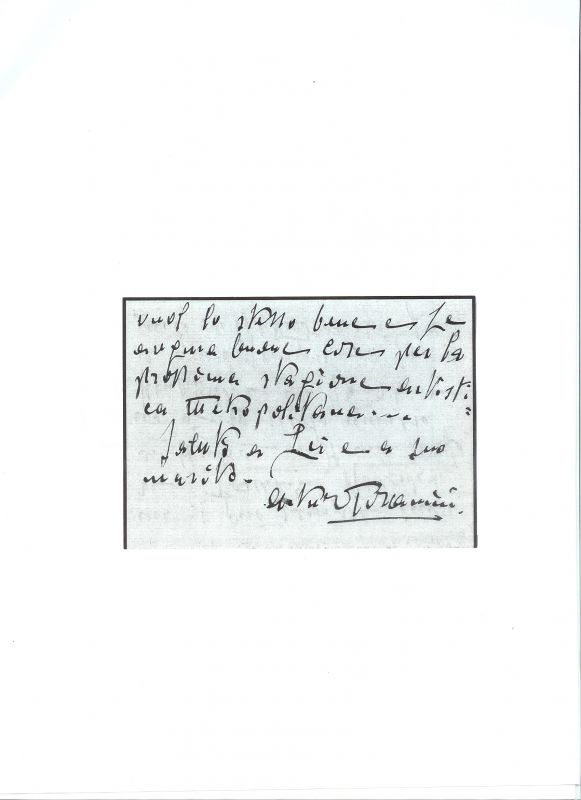 vuol lo stesso bene e Le
augura buone cose per la
prossima stagione artisti=
ca Metropolitana....
Saluto a Lei e a suo
marito.
Arturo Toscanini